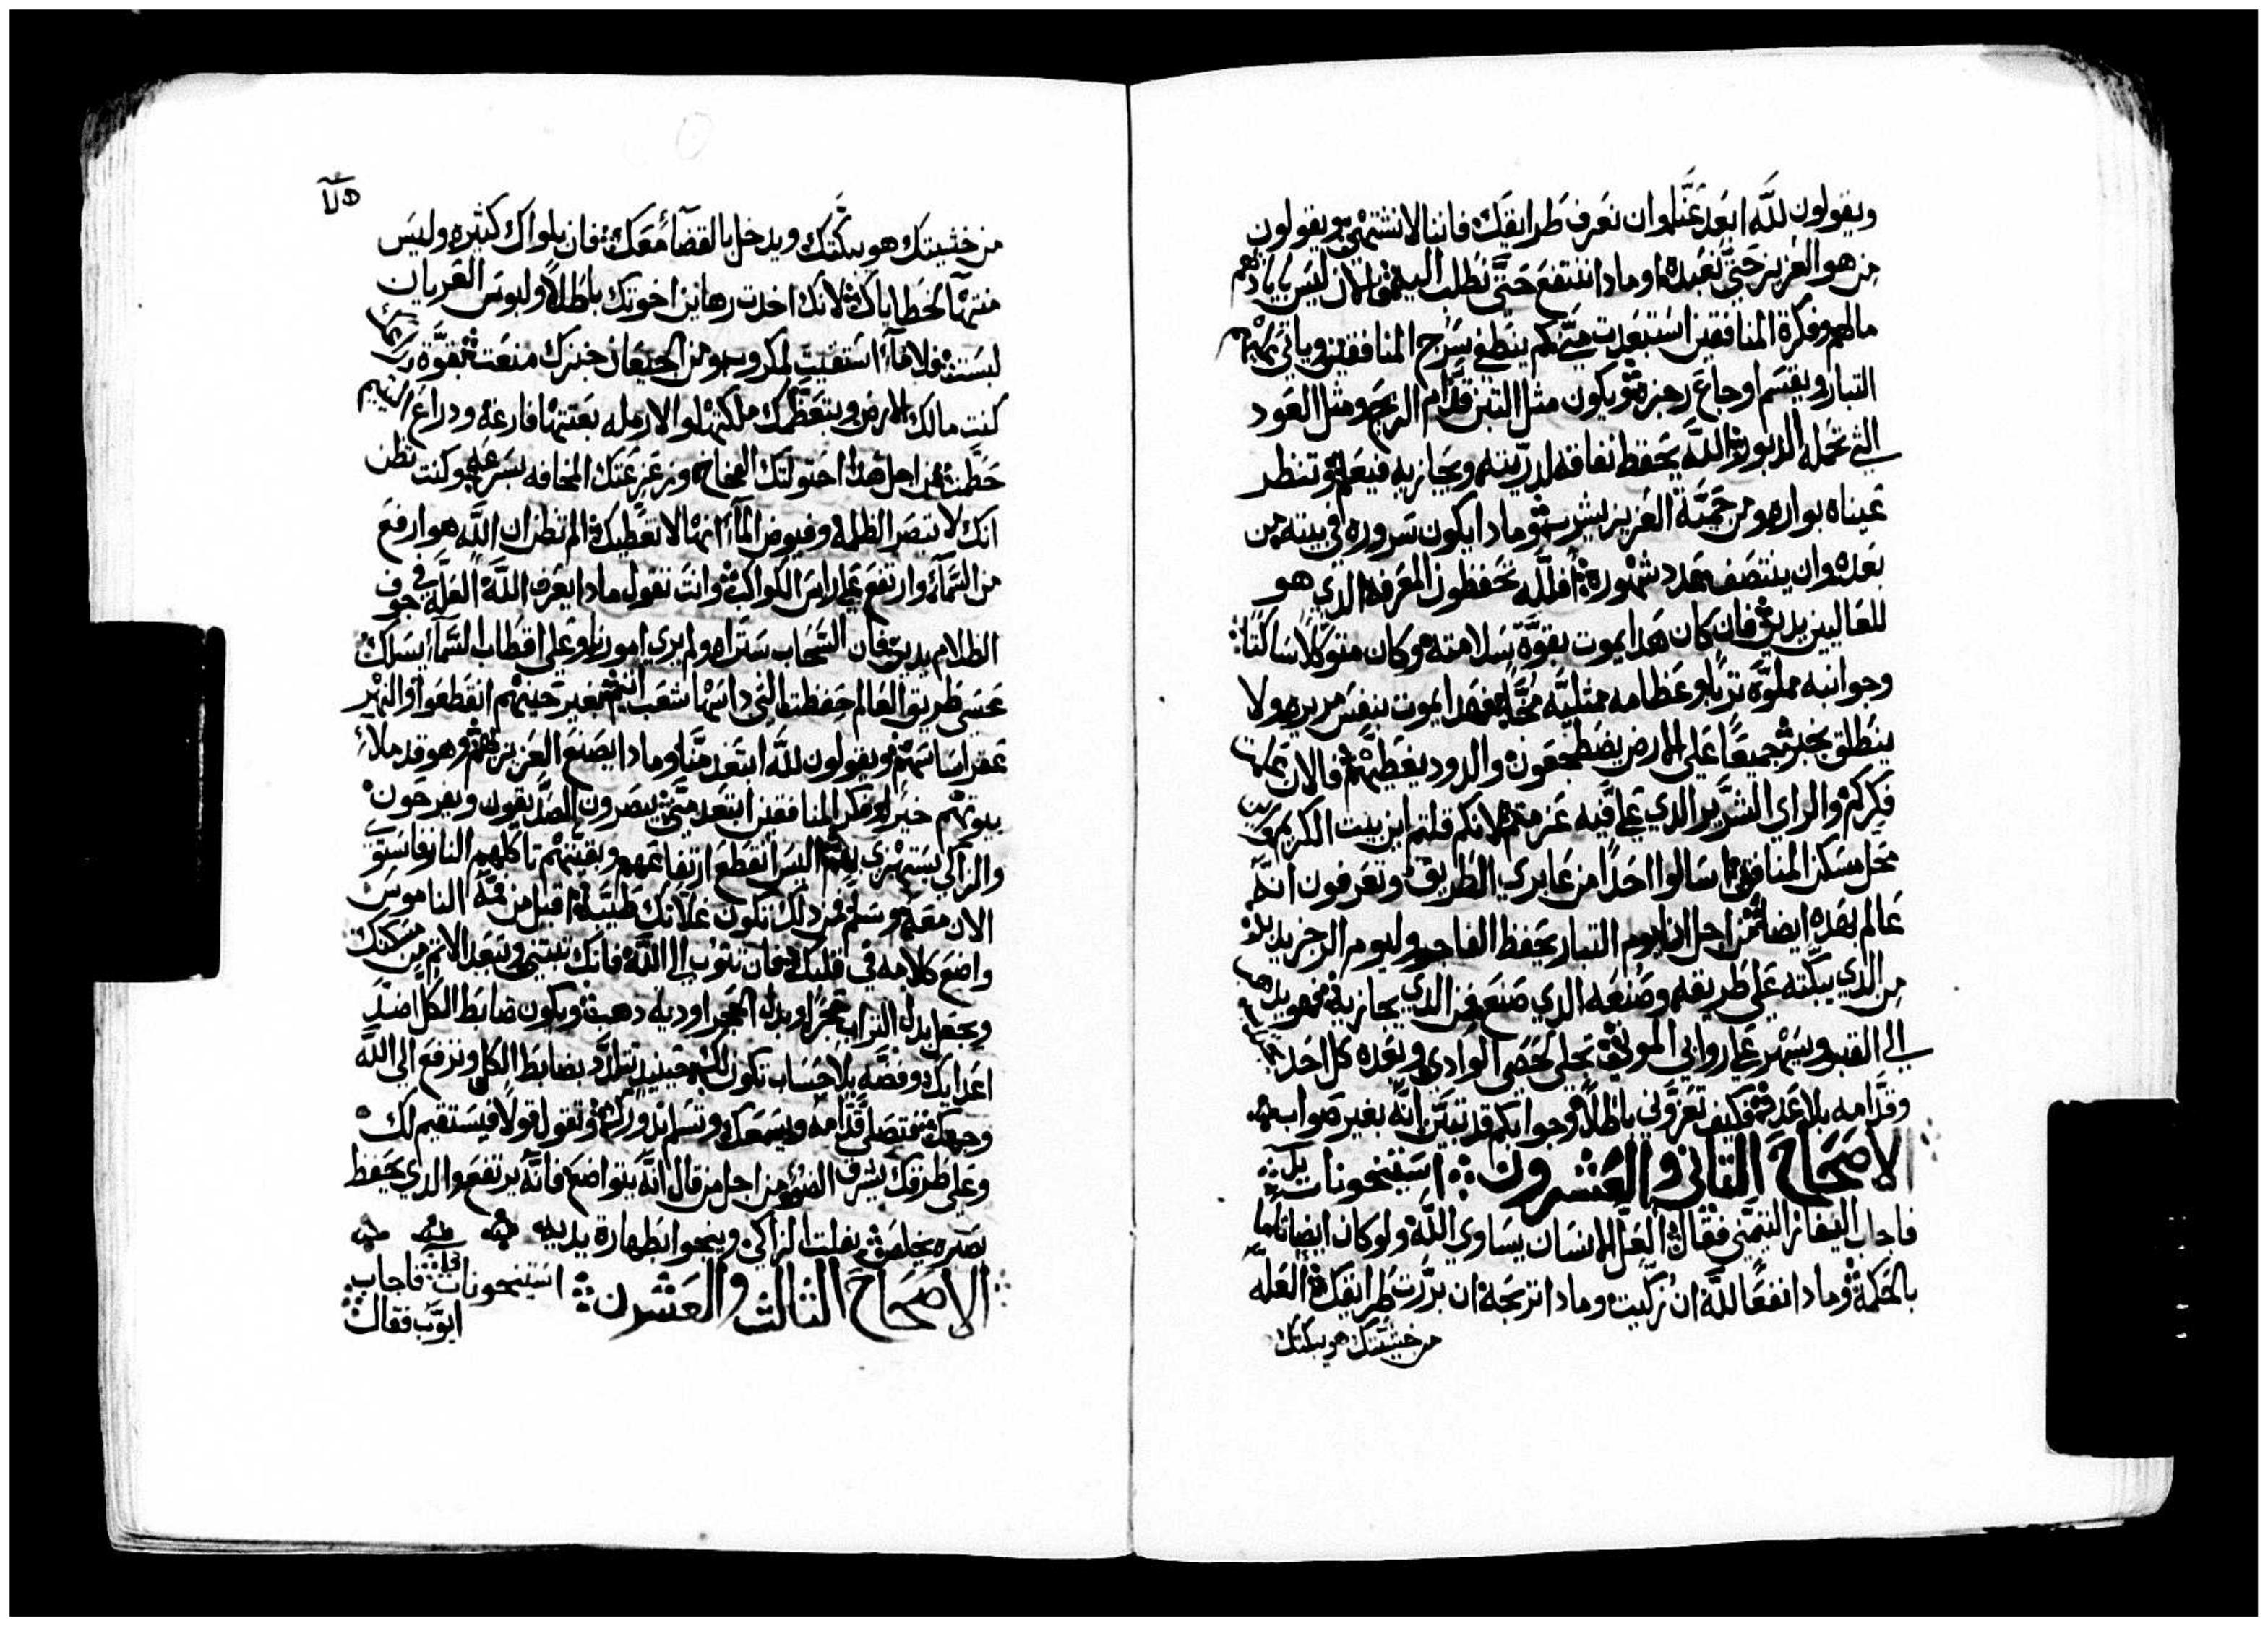 ويقولون لله ابعد عنّا وان نعرف طرايقك فاننا لا نشتهي ويقولون
من هو العزيز حتى نعبده وماذا ننتفع حتى نطلب اليه الان ليس باياديهم
مالهم وفكرة المنافقين استبعدت منّي كم ينطفي سرج المنافقين وياتي عليهم
التبار ويقسم اوجاع رجزه ويكون مثل التبن قدّام الريح ومثل العود
التي تحمله الزوبعة الله يحفظ نفاقه لدرّيته ويجازيه فيعلم وتنظر
عيناه بواره ومن حميّة العزيز يشرب وماذا يكون سروره في بيته من
بعده وان ينتصف عدد شهوره افلله تحفظون المعرفه الدي هو
للعاليين يدين فان كان هدا يموت بقوّة سلامته وكان متوكلاً ساكتًا
وجوانبه مملوّه ترباً وعظامه ممتليّه مخًّا فهدا يموت بنفس مريره ولا
ينطلق بخير جميعًا على الارض يضطجعون والدود يغطيهم فالان علمت
فكركم والراي الشرير الدي عليّ فيه عزمتم لانكم قلتم اين بيت الكريم واين
محل مسكن المنافق اسالوا احدًا من عابري الطريق وتعرفون انه
عالم بهده ايضا من اجل ان ليوم التبار يحفظ الفاجر وليوم الرجز يدبل
من الدي يبكّته على طريقه وصنعه الدي صنع من الدي يجازيه فهو يدهب
الى القبر ويسهر على روابي الموتي تحلي حصي الوادي وبعده كل احد
وقدّامه بلا عدد فكيف تعزّوني باطلاً وجوابكم قد تبيّن انّه بغير صواب
الاصحاح التاني والعشرون استيخونات
فاجاب اليفاز التيمني فقال العلّ الانسان يساوي الله ولو كان ايضا تاما
بالحكمة وماذا نفعًا لله ان زكّيت وماذا تربحة ان برّرت طرايقك العله
من خشيتك هو يبكتك
من خشيتك هو يبكّتك ويدخل بالقضآ معك فان بلواك كثيره وليس
منتها لخطاياك لانك اخدت رهاين اخوتك باطلاً ولبوس العريان
لبست فلا مآء استقيت لمكروب ومن الجيعان خبزك منعت بقوّة دراعك
كنت مالك الارض وبتعظّمك ملكتها والارمله بعتتها فارغه ودراع اليتيم
حطّمت من اجل هدا احتولتك الفخاخ وزعزعتك المخافه بسرعه وكنت تظن
انك لا تبصر الظلمه وفيوض المآء انها لا تغطيك الم تظن ان الله هو ارفع
من السّمآء وارتفع على راس الكواكب وانت تقول مادا يعرف الله العلّه في جوف
الظلام يدين فان السّحاب ستراه ولم يري امورنا وعلى اقطاب السّمآء يسلك
عسى طريق العالم حفظتها التي داسها شعب اثيم بغير حينهم انقطعوا والنهر
عقر اساسهم ويقولون لله ابتعد منّا وماذا يصنع العزيز بهم وهو قد ملاء
بيوتهم خير او فكر المنافقين ابتعد منّي يبصرون الصدّيقون ويفرحون
والزاكي يستهزي بهم اليس انقطع ارتفاعهم وبقيّتهم تاكلهم النار فاستو
الان معه وسلّم فمن دلك تكون غلاتك طيّبه اقبل من فمّه الناموس
واضع كلامه في قلبك فان تتوب الى الله فانك تبتني وتبعد الاثم من مسكنك
وتجعل بدل التراب حجرًا وبدل الحجر اوديه دهب ويكون ضابط الكل اضدّ
اعدايك وفضّه بلا حساب تكون لك حينيد تتلدّد بضابط الكل وترفع الى الله
وجهك فتصلّي قدّامه ويسمعك وتسلم ندورك وتقول قولاً فيستقيم لك
وعلى طرقك يشرق الضوء من اجل من قال انّه يتواضع فانّه يرتفع والدي يحفظ
بصره يخلص يفلت الزاكي وينجوا بطهارة يديه
الاصحاح الثالث والعشرن استيخونات فاجاب
ايوّب فقال